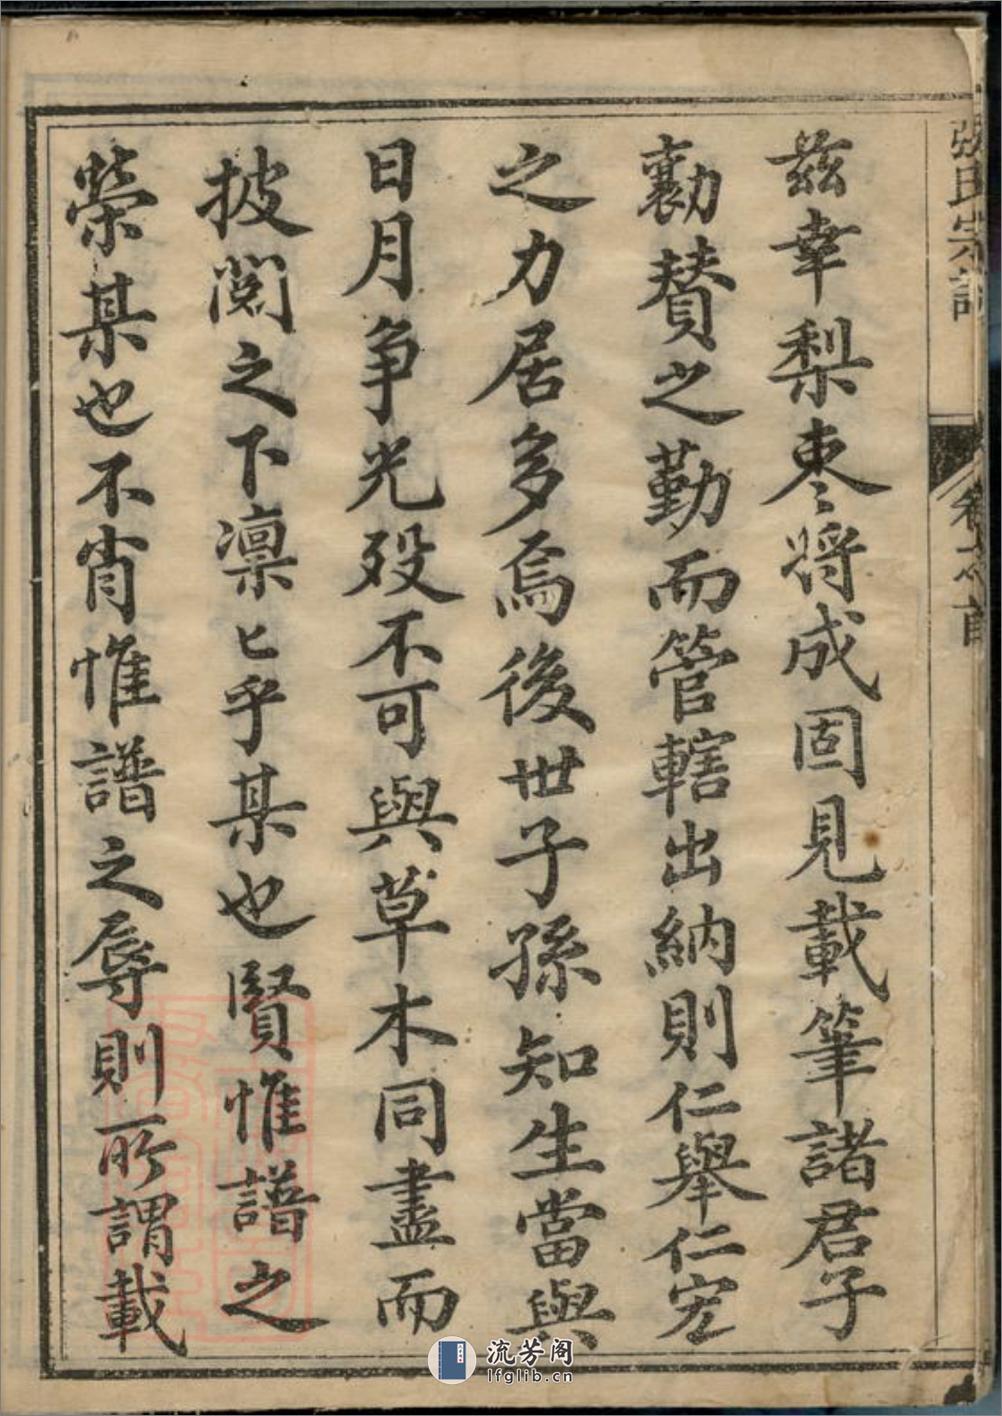 張氏宗譜
卷之首
茲幸梨枣將成固見載筆諸君子
勷賛之勤而管轄出納則仁舉仁宏
之力居多焉後世子孫知生當與
日月争光殁不可與草木同盡而
披閲之下凛匕乎某也賢惟譜之
榮某也不肖惟譜之辱則所謂載
流芳阁
lfglib.cn